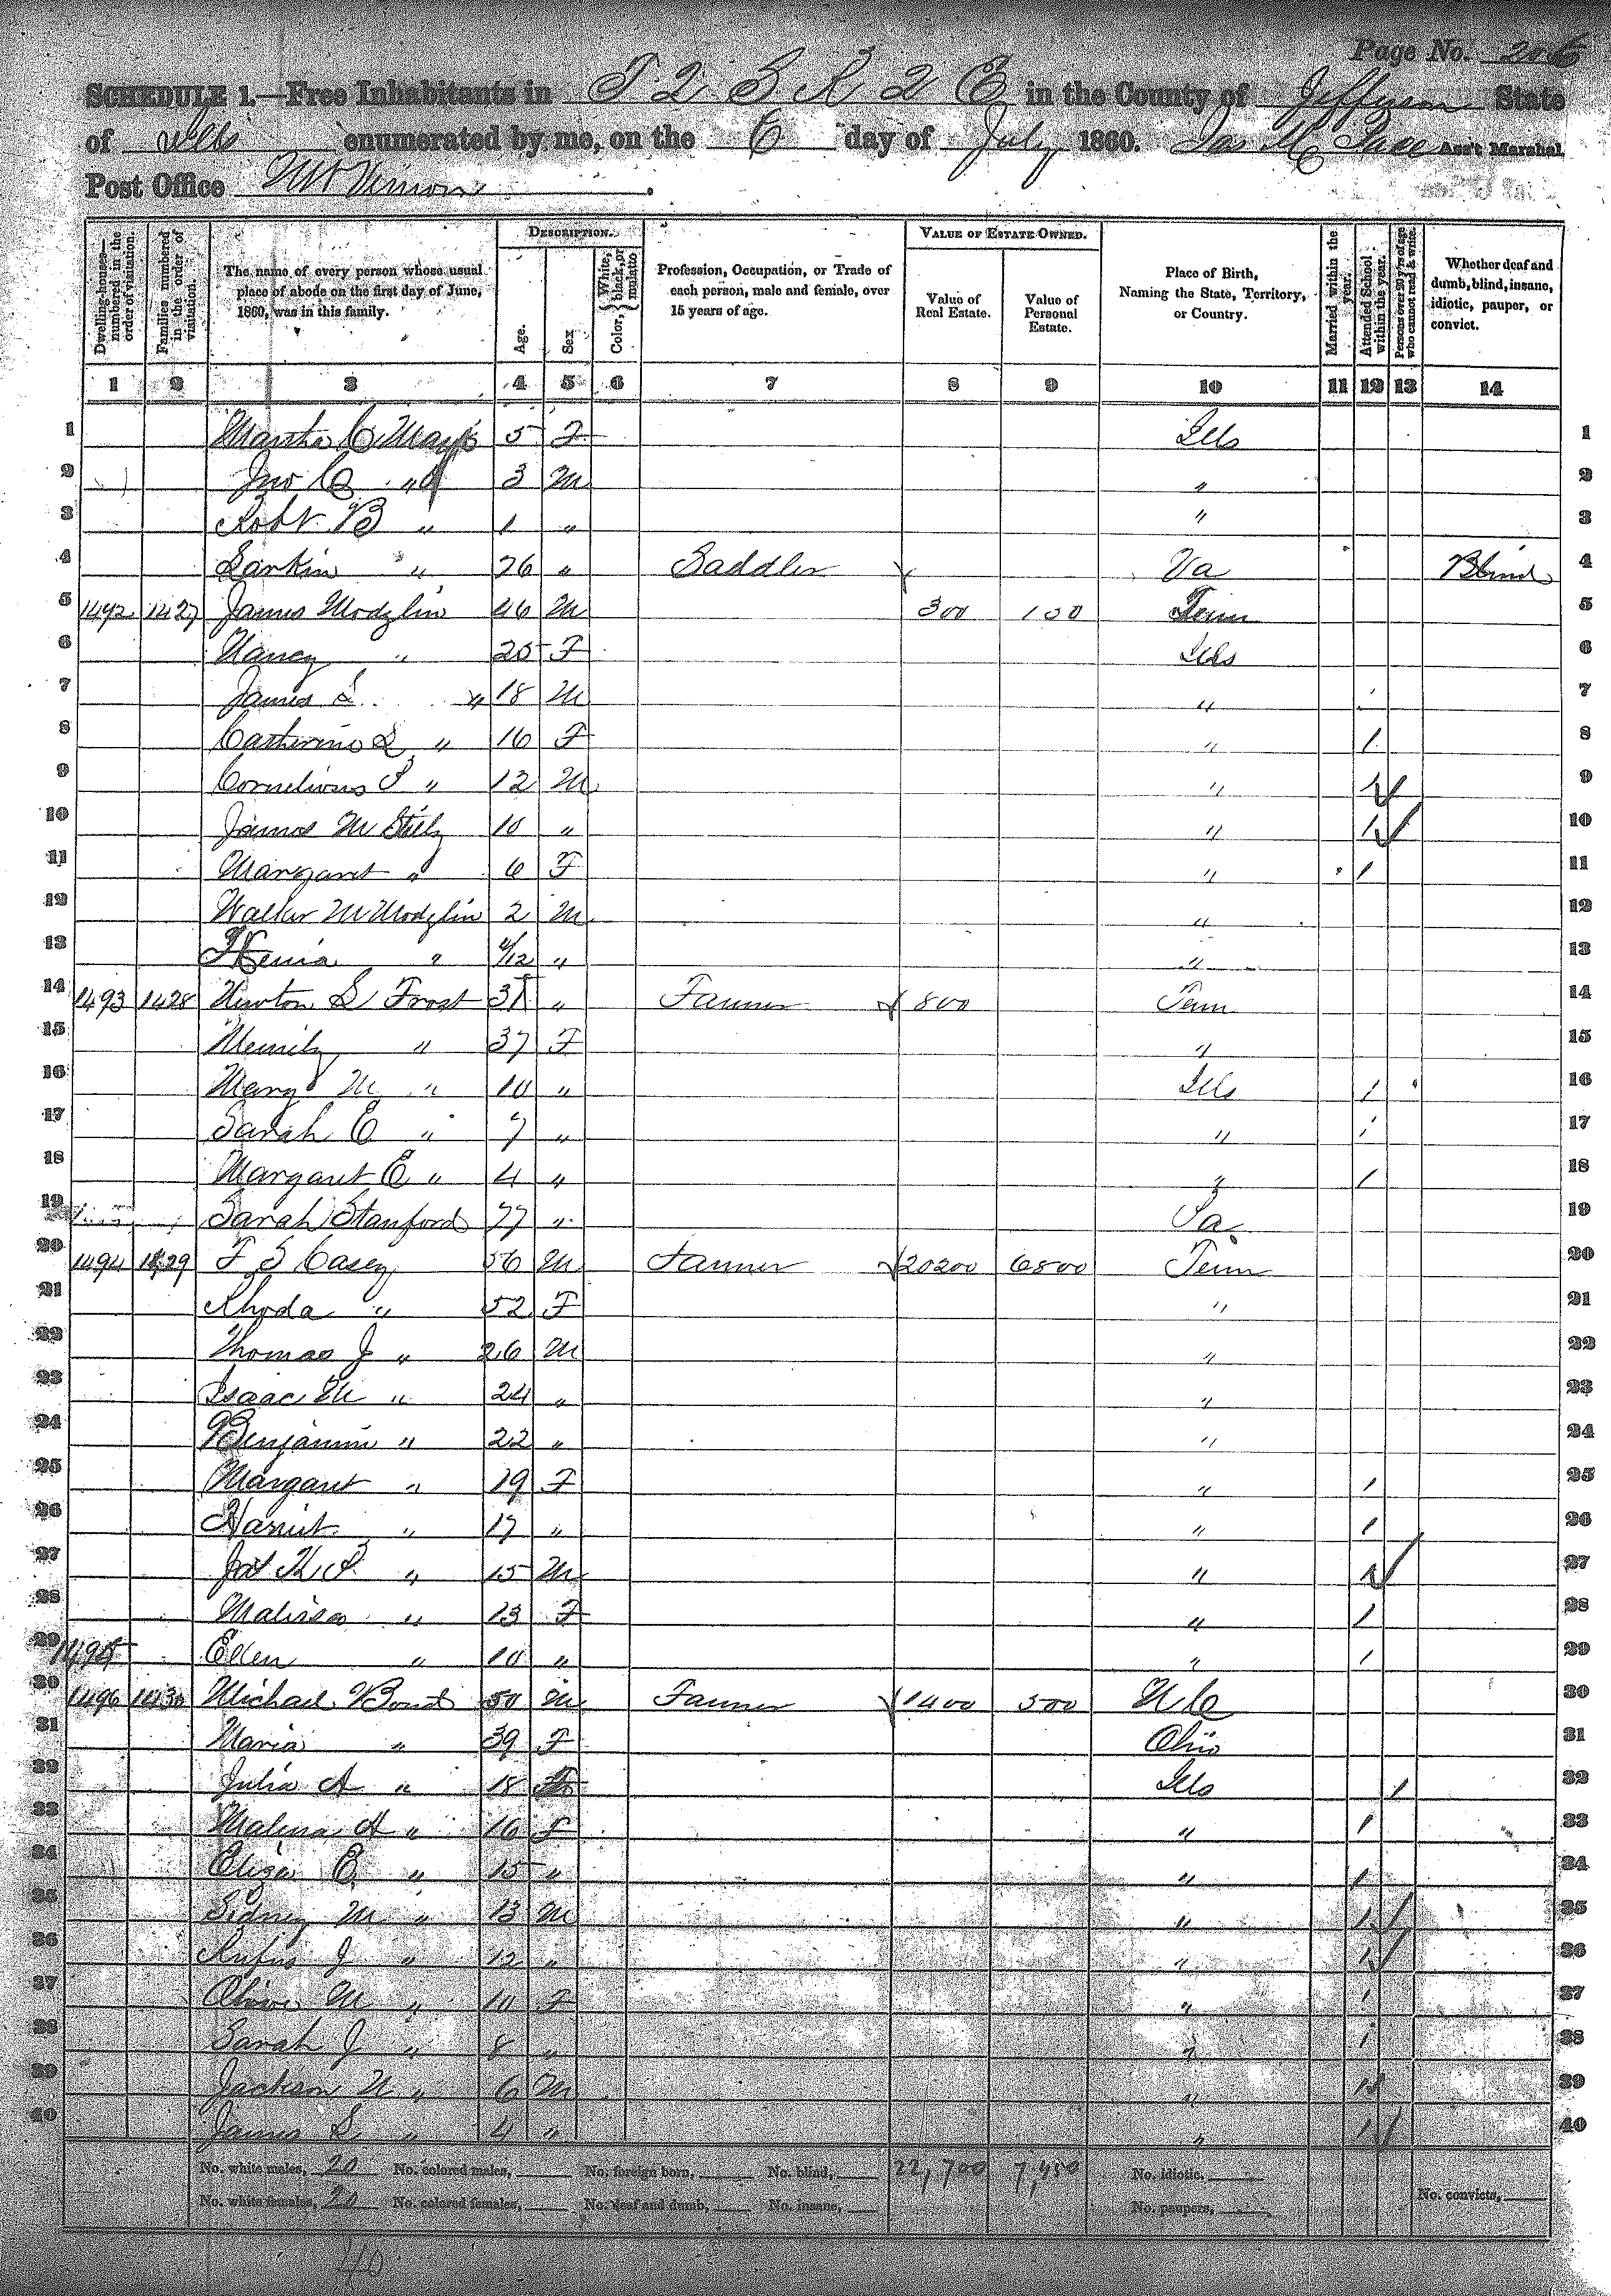 Page No. 206
SCHEDULE 1.—Free Inhabitants in T 2 S R 2 E in the County of Jefferson State
of Ills enumerated by me, on the 6 day of July 1860. Jas M Pace Ass't Marshal.
Post Office Mt Vernon.
Dwelling-houses—numbered in the order of visitation.
Families numbered in the order of visitation.
The name of every person whose usual place of abode on the first day of June, 1860, was in this family.
DESCRIPTION.
Age.
Sex
Color, White, black, or mulatto
Profession, Occupation, or Trade of each person, male and female, over 15 years of age.
VALUE OF ESTATE OWNED.
Value of Real Estate.
Value of Personal Estate.
Place of Birth, Naming the State, Territory, or Country.
Married within the year.
Attended School within the year.
Persons over 20 y'rs of age who cannot read & write.
Whether deaf and dumb, blind, insane, idiotic, pauper, or convict.
1 2 3 4 5 6 7 8 9 10 11 12 13 14
1 Martha C Mays 5 F Ills 1
2 Jno C " 3 M " 2
3 Robt B " 1 " " 3
4 Larkin " 76 " Saddler Va Blind 4
5 1492 1427 James Modglin 46 M 300 100 Tenn 5
6 Nancy " 25 F Ills 6
7 James L " 18 M " 7
8 Catherine L " 16 F " 1 8
9 Cornelious P " 12 M " 1 9
10 James M 10 " " 1 10
11 Margaret " 6 F " 1 11
12 Walker M Modglin 2 M " 12
13 " /12 " " 13
14 1493 1428 Newton S Frost 31 " Farmer 800 Tenn 14
15 " 37 F " 15
16 Mary M " 10 " Ills 1 16
17 Sarah E " 7 " " 1 17
18 Margaret E " 4 " " 1 18
19 Sarah Stanford 77 " Pa 19
20 1494 1429 F S Casey 56 M Farmer 20200 6800 Tenn 20
21 Rhoda " 52 F " 21
22 Thomas J " 26 M " 22
23 Isaac M " 24 " " 23
24 Benjamin " 22 " " 24
25 Margaret " 19 F " 1 25
26 Harriet " 17 " " 1 26
27 Jas K P " 15 M " 1 27
28 Malissa " 13 F " 1 28
29 1495 Ellen " 10 " " 1 29
30 1496 1430 Michael Bond 50 M Farmer 1400 500 N C 30
31 Maria " 39 F Ohio 31
32 Julia A " 18 F Ills 1 32
33 Malina A " 16 F " 1 33
34 Eliza E " 15 " " 1 34
35 Sidney M " 13 M " 1 35
36 Rufus J " 12 " " 1 36
37 Olive M " 10 F " 1 37
38 Sarah J " 8 " " 1 38
39 Jackson N " 6 M " 1 39
40 James S " 4 " " 1 40
No. white males, 20 No. colored males, No. foreign born, No. blind, 22,700 7,450 No. idiotic,
No. white females, 20 No. colored females, No. deaf and dumb, No. insane, No. paupers, No. convicts,
40